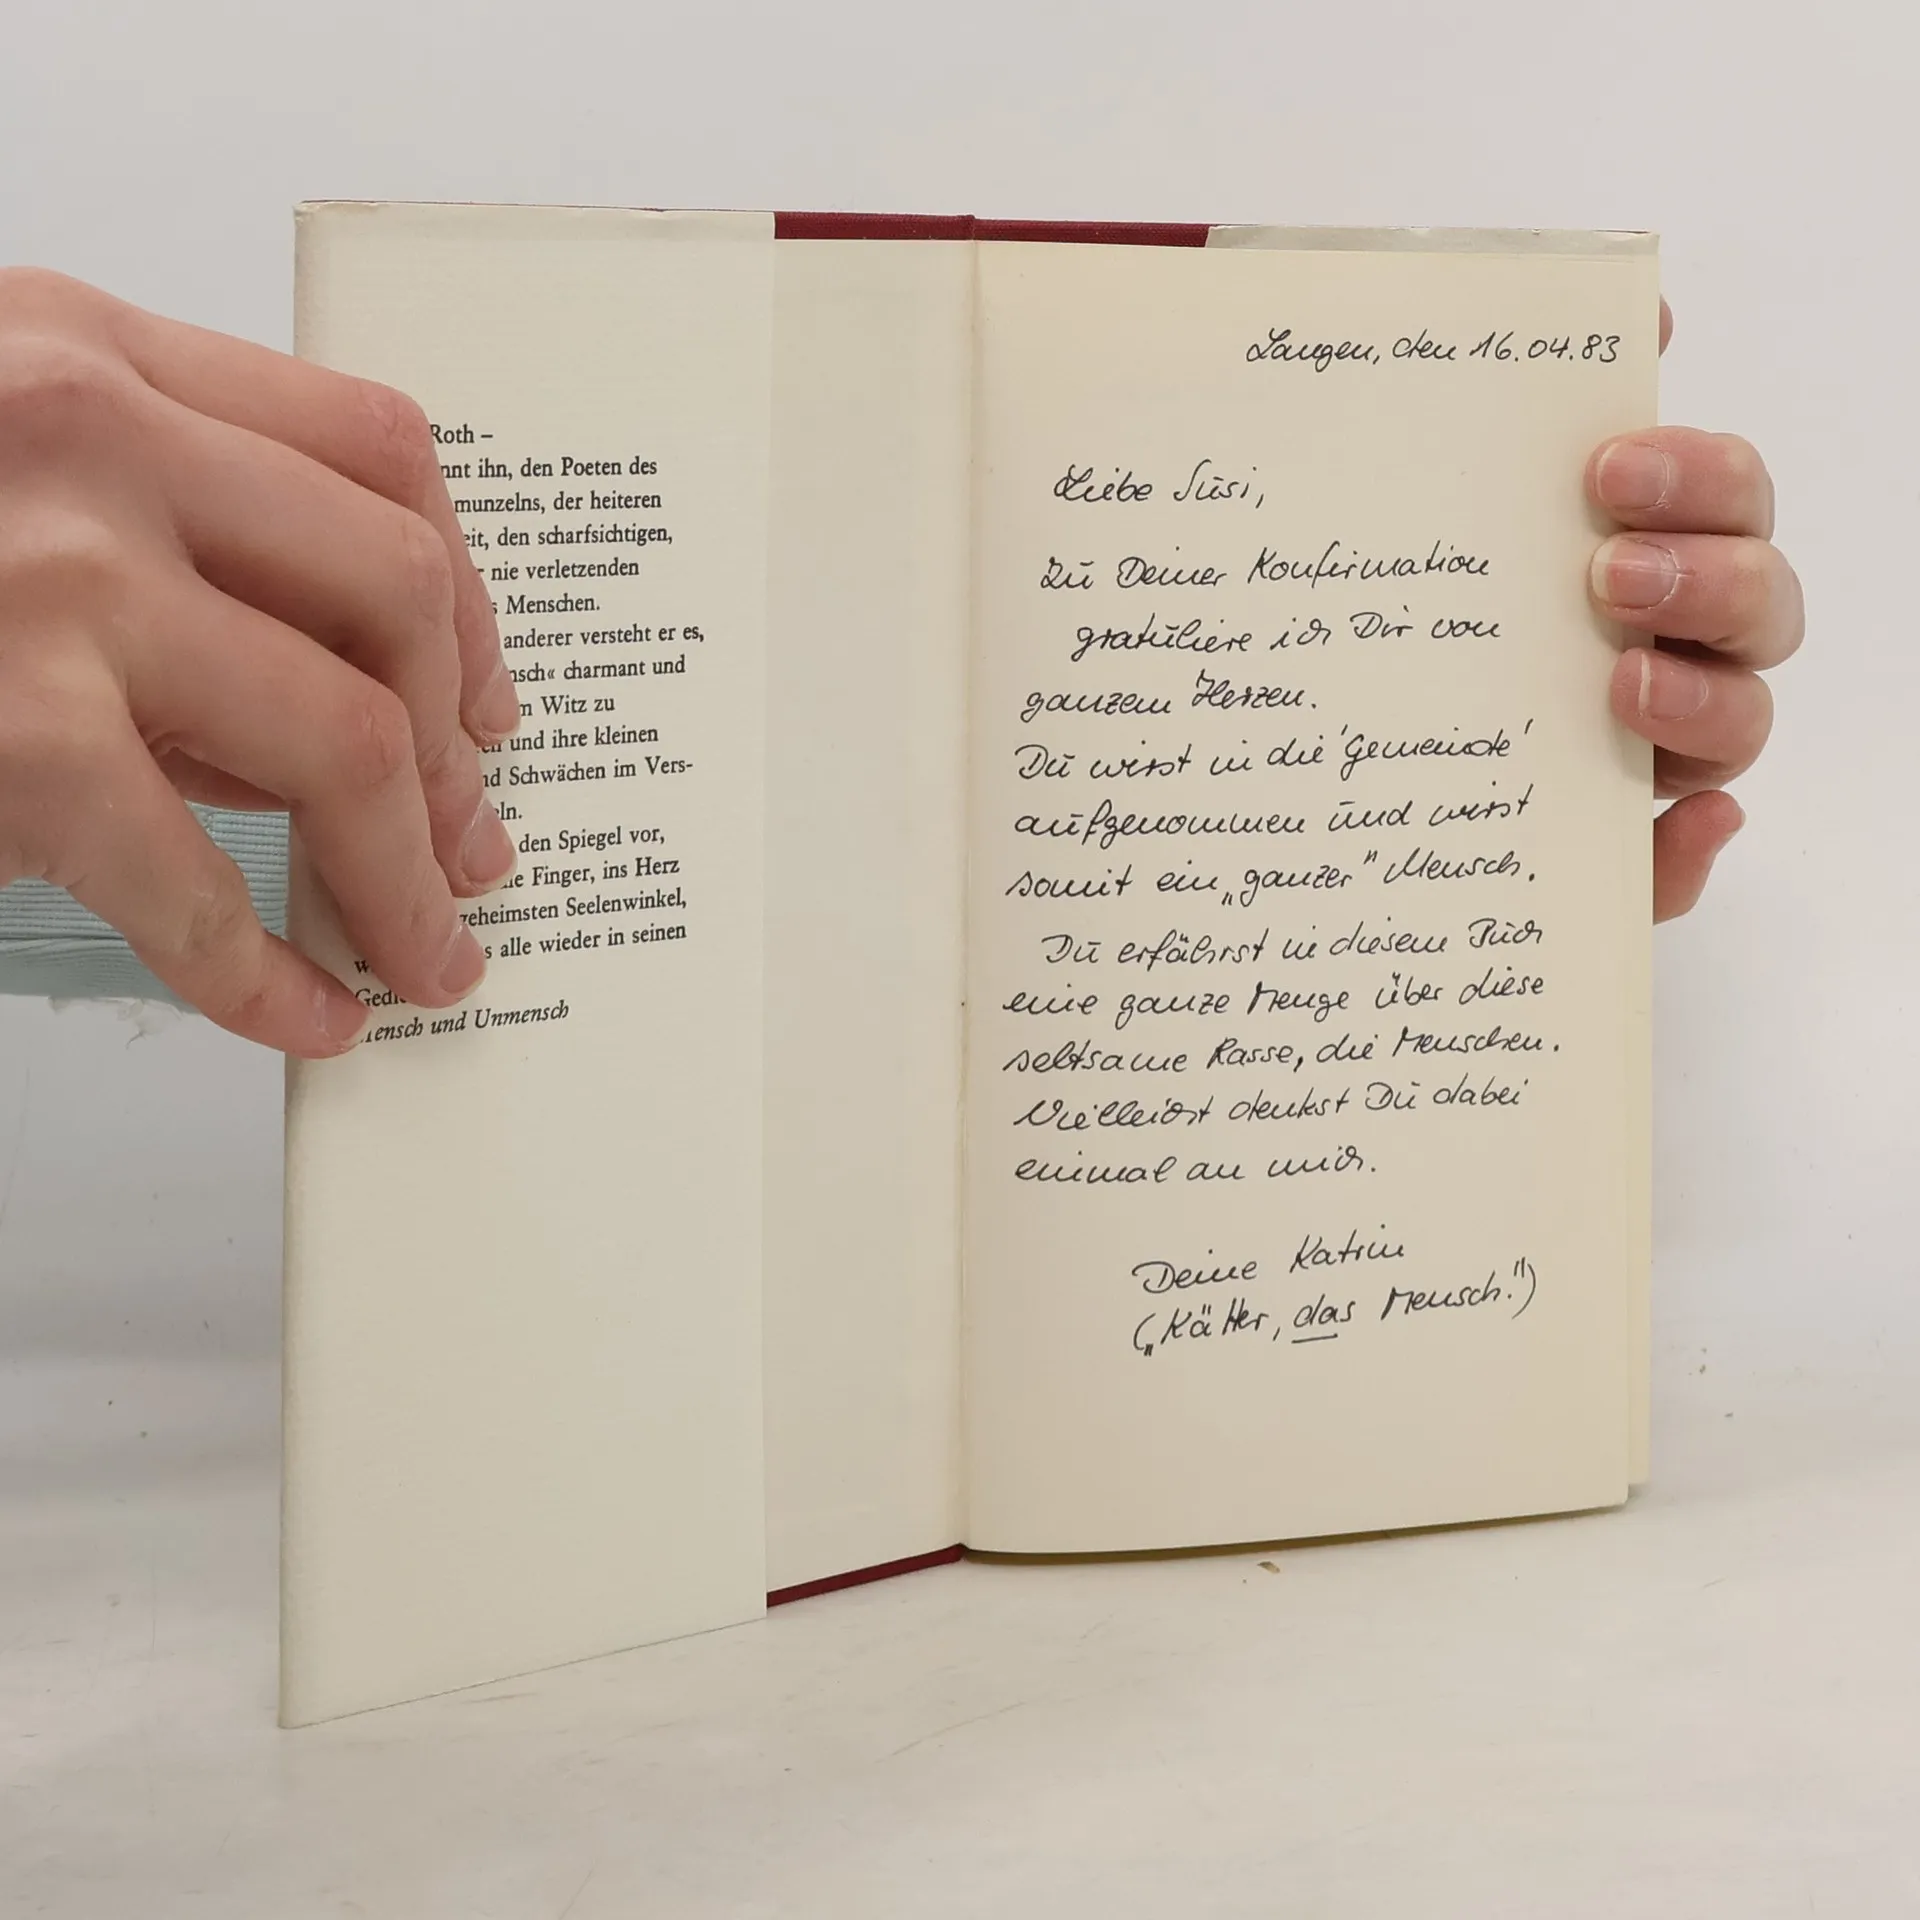 Roth –
ihn, den Poeten des
der heiteren
den scharfsichtigen,
nie verletzenden
Menschen.
anderer versteht er es,
charmant und
Witz zu
und ihre kleinen
Schwächen im Vers-
den Spiegel vor,
Finger, ins Herz
geheimsten Seelenwinkel,
alle wieder in seinen
Mensch und Unmensch
Langen, den 16.04.83
Liebe Susi,
Zu Deiner Konfirmation
gratuliere ich Dir von
ganzem Herzen.
Du wirst in die 'Gemeinde'
aufgenommen und wirst
somit ein „ganzer" Mensch.
Du erfährst in diesem Buch
eine ganze Menge über diese
seltsame Rasse, die Menschen.
Vielleicht denkst Du dabei
einmal an mich.
Deine Katrin
(„Kätter, das Mensch.")